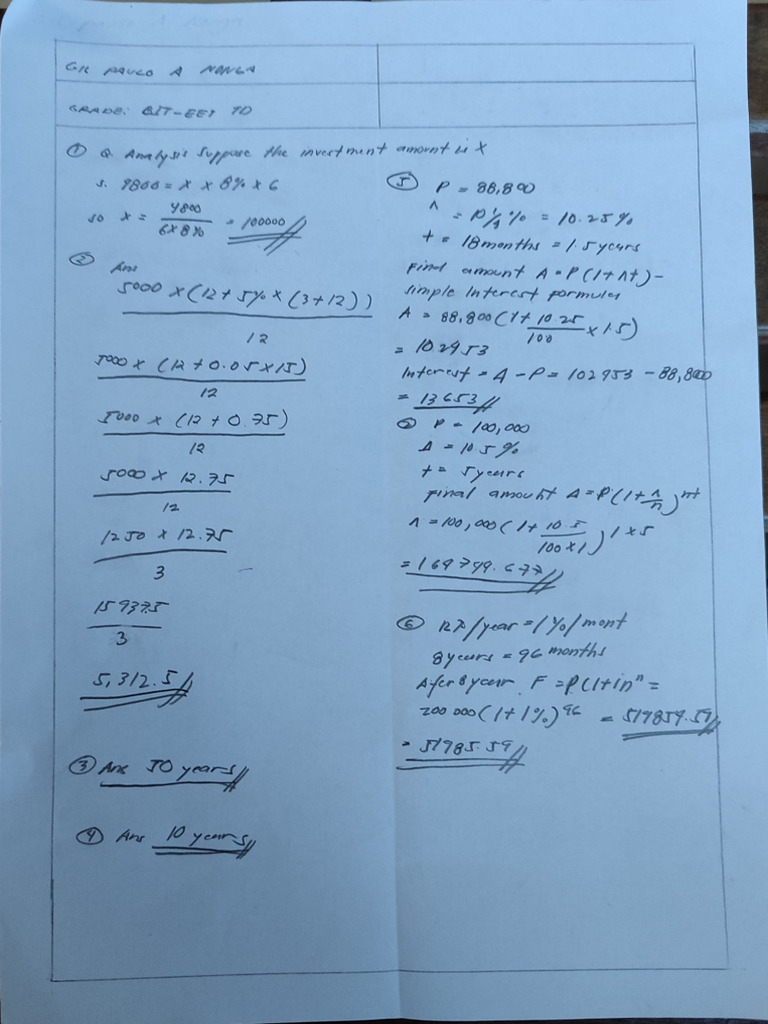 GIL PAULO A NONGA
GRADE: BIT-EET 1D
① Q. Analysis Suppose the investment amount is X
s. 4800 = x x 8% x 6
so x = 4800 / 6x8% = 100000
②
Ans
5000 x (12 + 5% x (3+12))
12
5000 x (12 + 0.05 x 15)
12
5000 x (12 + 0.75)
12
5000 x 12.75
12
1250 x 12.75
3
15937.5
3
5,312.5
③ Ans 50 years
④ Ans 10 years
⑤ P = 88,800
r = 10 1/4 % = 10.25%
t = 18 months = 1.5 years
Final amount A = P(1+rt) -
simple Interest formula
A = 88,800 (1 + 10.25 / 100 x 1.5)
= 102953
Interest = A - P = 102953 - 88,800
= 13653
P = 100,000
r = 10.5%
t = 5 years
Final amount A = P(1 + r/n)nt
A = 100,000 (1 + 10.5 / 100x1) 1x5
= 164799.677
⑥ 12%/year = 1%/mont
8 years = 96 months
After 8 year F = P(1+i)nⁿ =
200 000 (1+1%)96 = 519859.59
= 51985.59